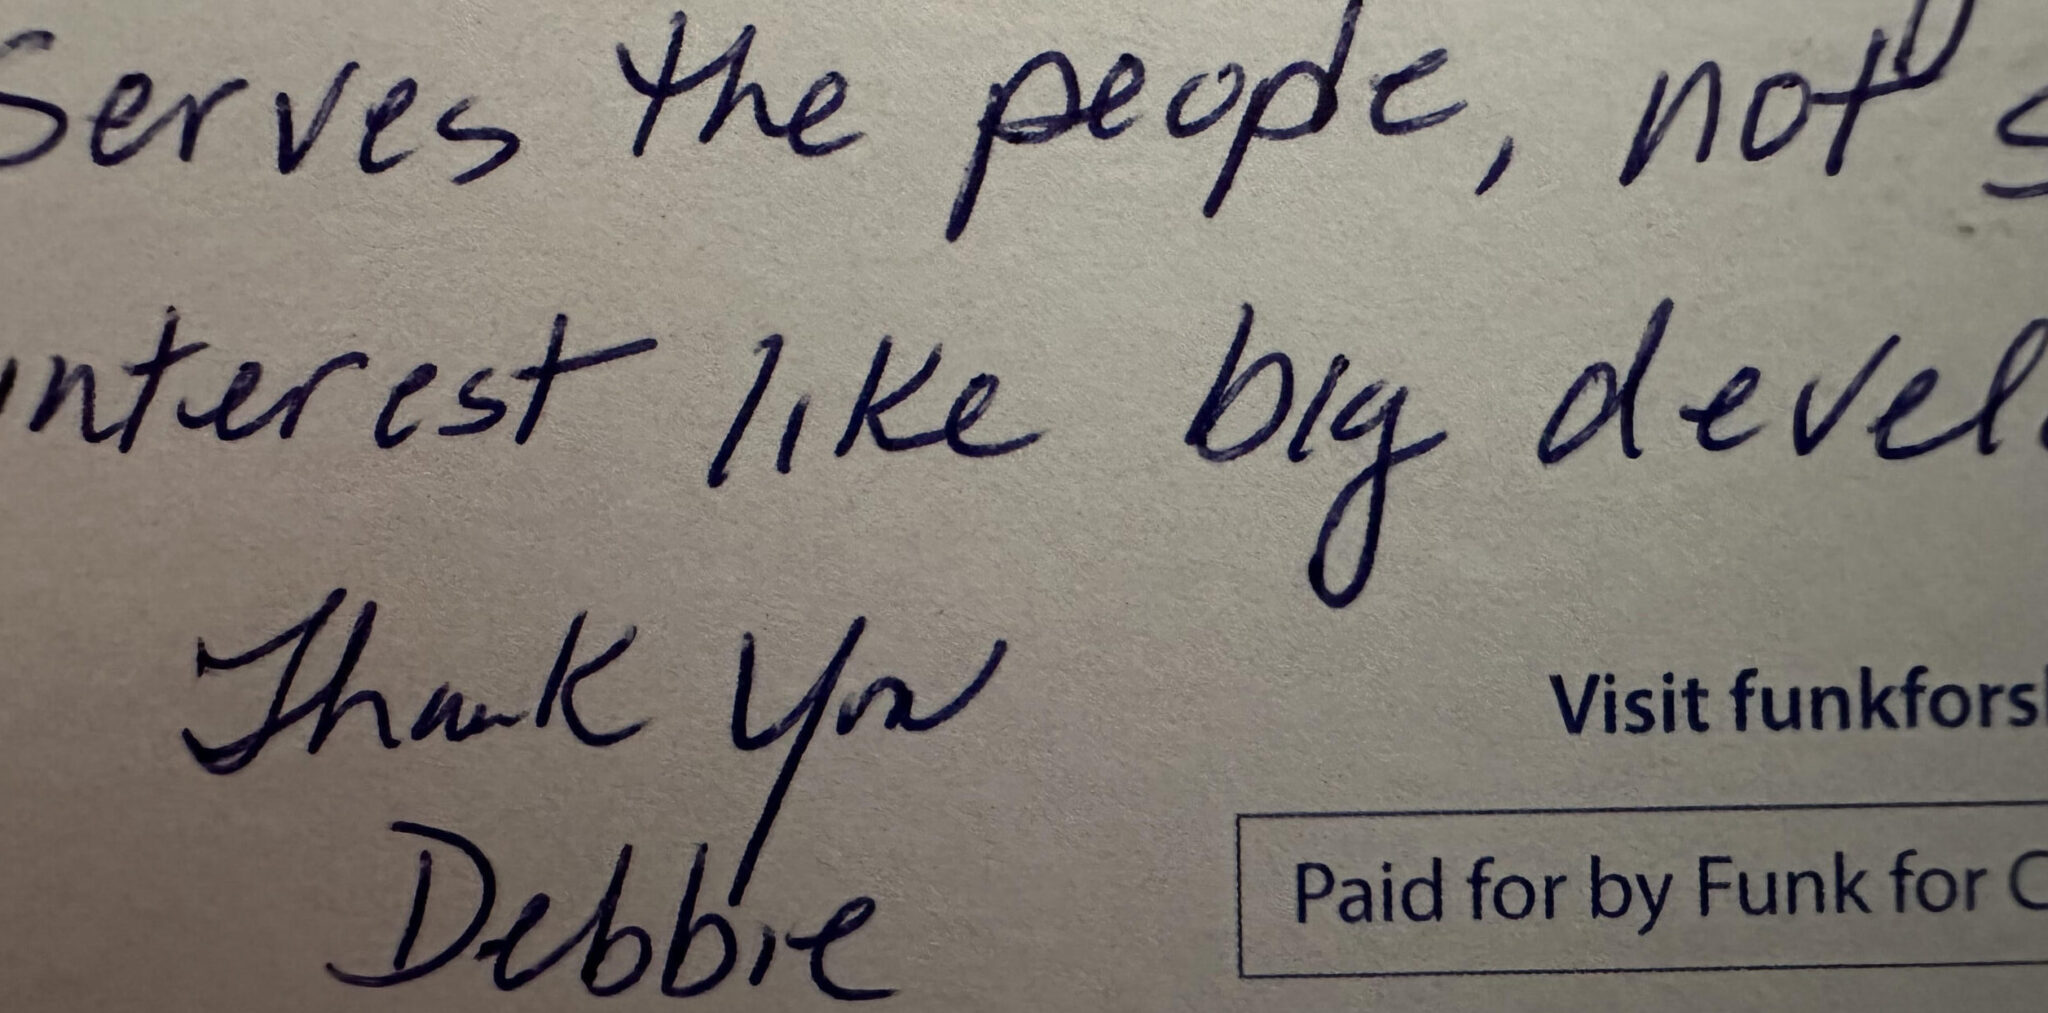 serves the people, not s
interest like big devel
Thank You
Debbie
Visit funkfors
Paid for by Funk for C